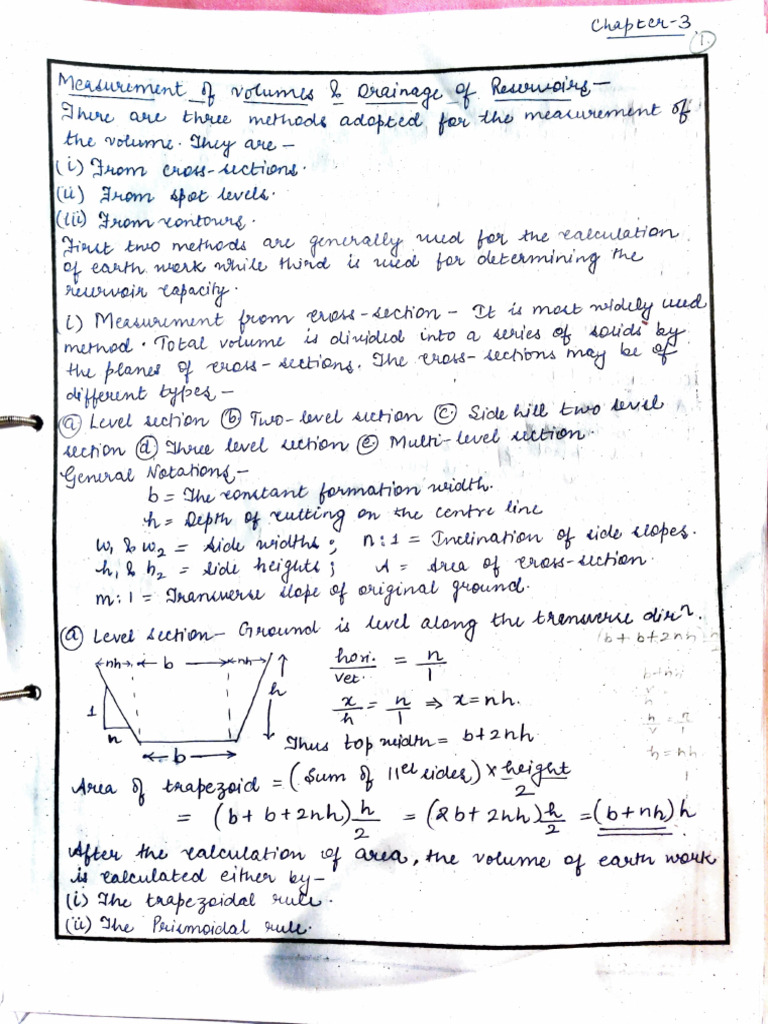 Chapter-3
1.
Measurement of volumes & Drainage of Reservoirs-
There are three methods adopted for the measurement of
the volume. They are -
(i) From cross-sections.
(ii) From spot levels.
(iii) From contours.
First two methods are generally used for the calculation
of earth work while third is used for determining the
reservoir capacity.
i) Measurement from cross-section - It is most widely used
method. Total volume is divided into a series of solids by
the planes of cross-sections. The cross-sections may be of
different types -
(a) Level section (b) Two-level section (c) Side hill two level
section (d) Three level section (e) Multi-level section.
General Notations -
b = The constant formation width.
h = Depth of cutting on the centre line
w₁ & w₂ = side widths; n:1 = Inclination of side slopes.
h₁ & h₂ = side heights; A = Area of cross-section.
m:1 = Transverse slope of original ground.
(a) Level section - Ground is level along the transverse dirⁿ.
(b + b + 2nh)
nh b nh
hori./vet. = n/1
h
1
x/h = n/1 ⇒ x = nh.
n
Thus top width = b + 2nh
b
Area of trapezoid = (Sum of 11el sides) × height/2
= (b + b + 2nh) h/2 = (2b + 2nh) h/2 = (b + nh) h
After the calculation of area, the volume of earth work
is calculated either by -
(i) The trapezoidal rule.
(ii) The Prismoidal rule.